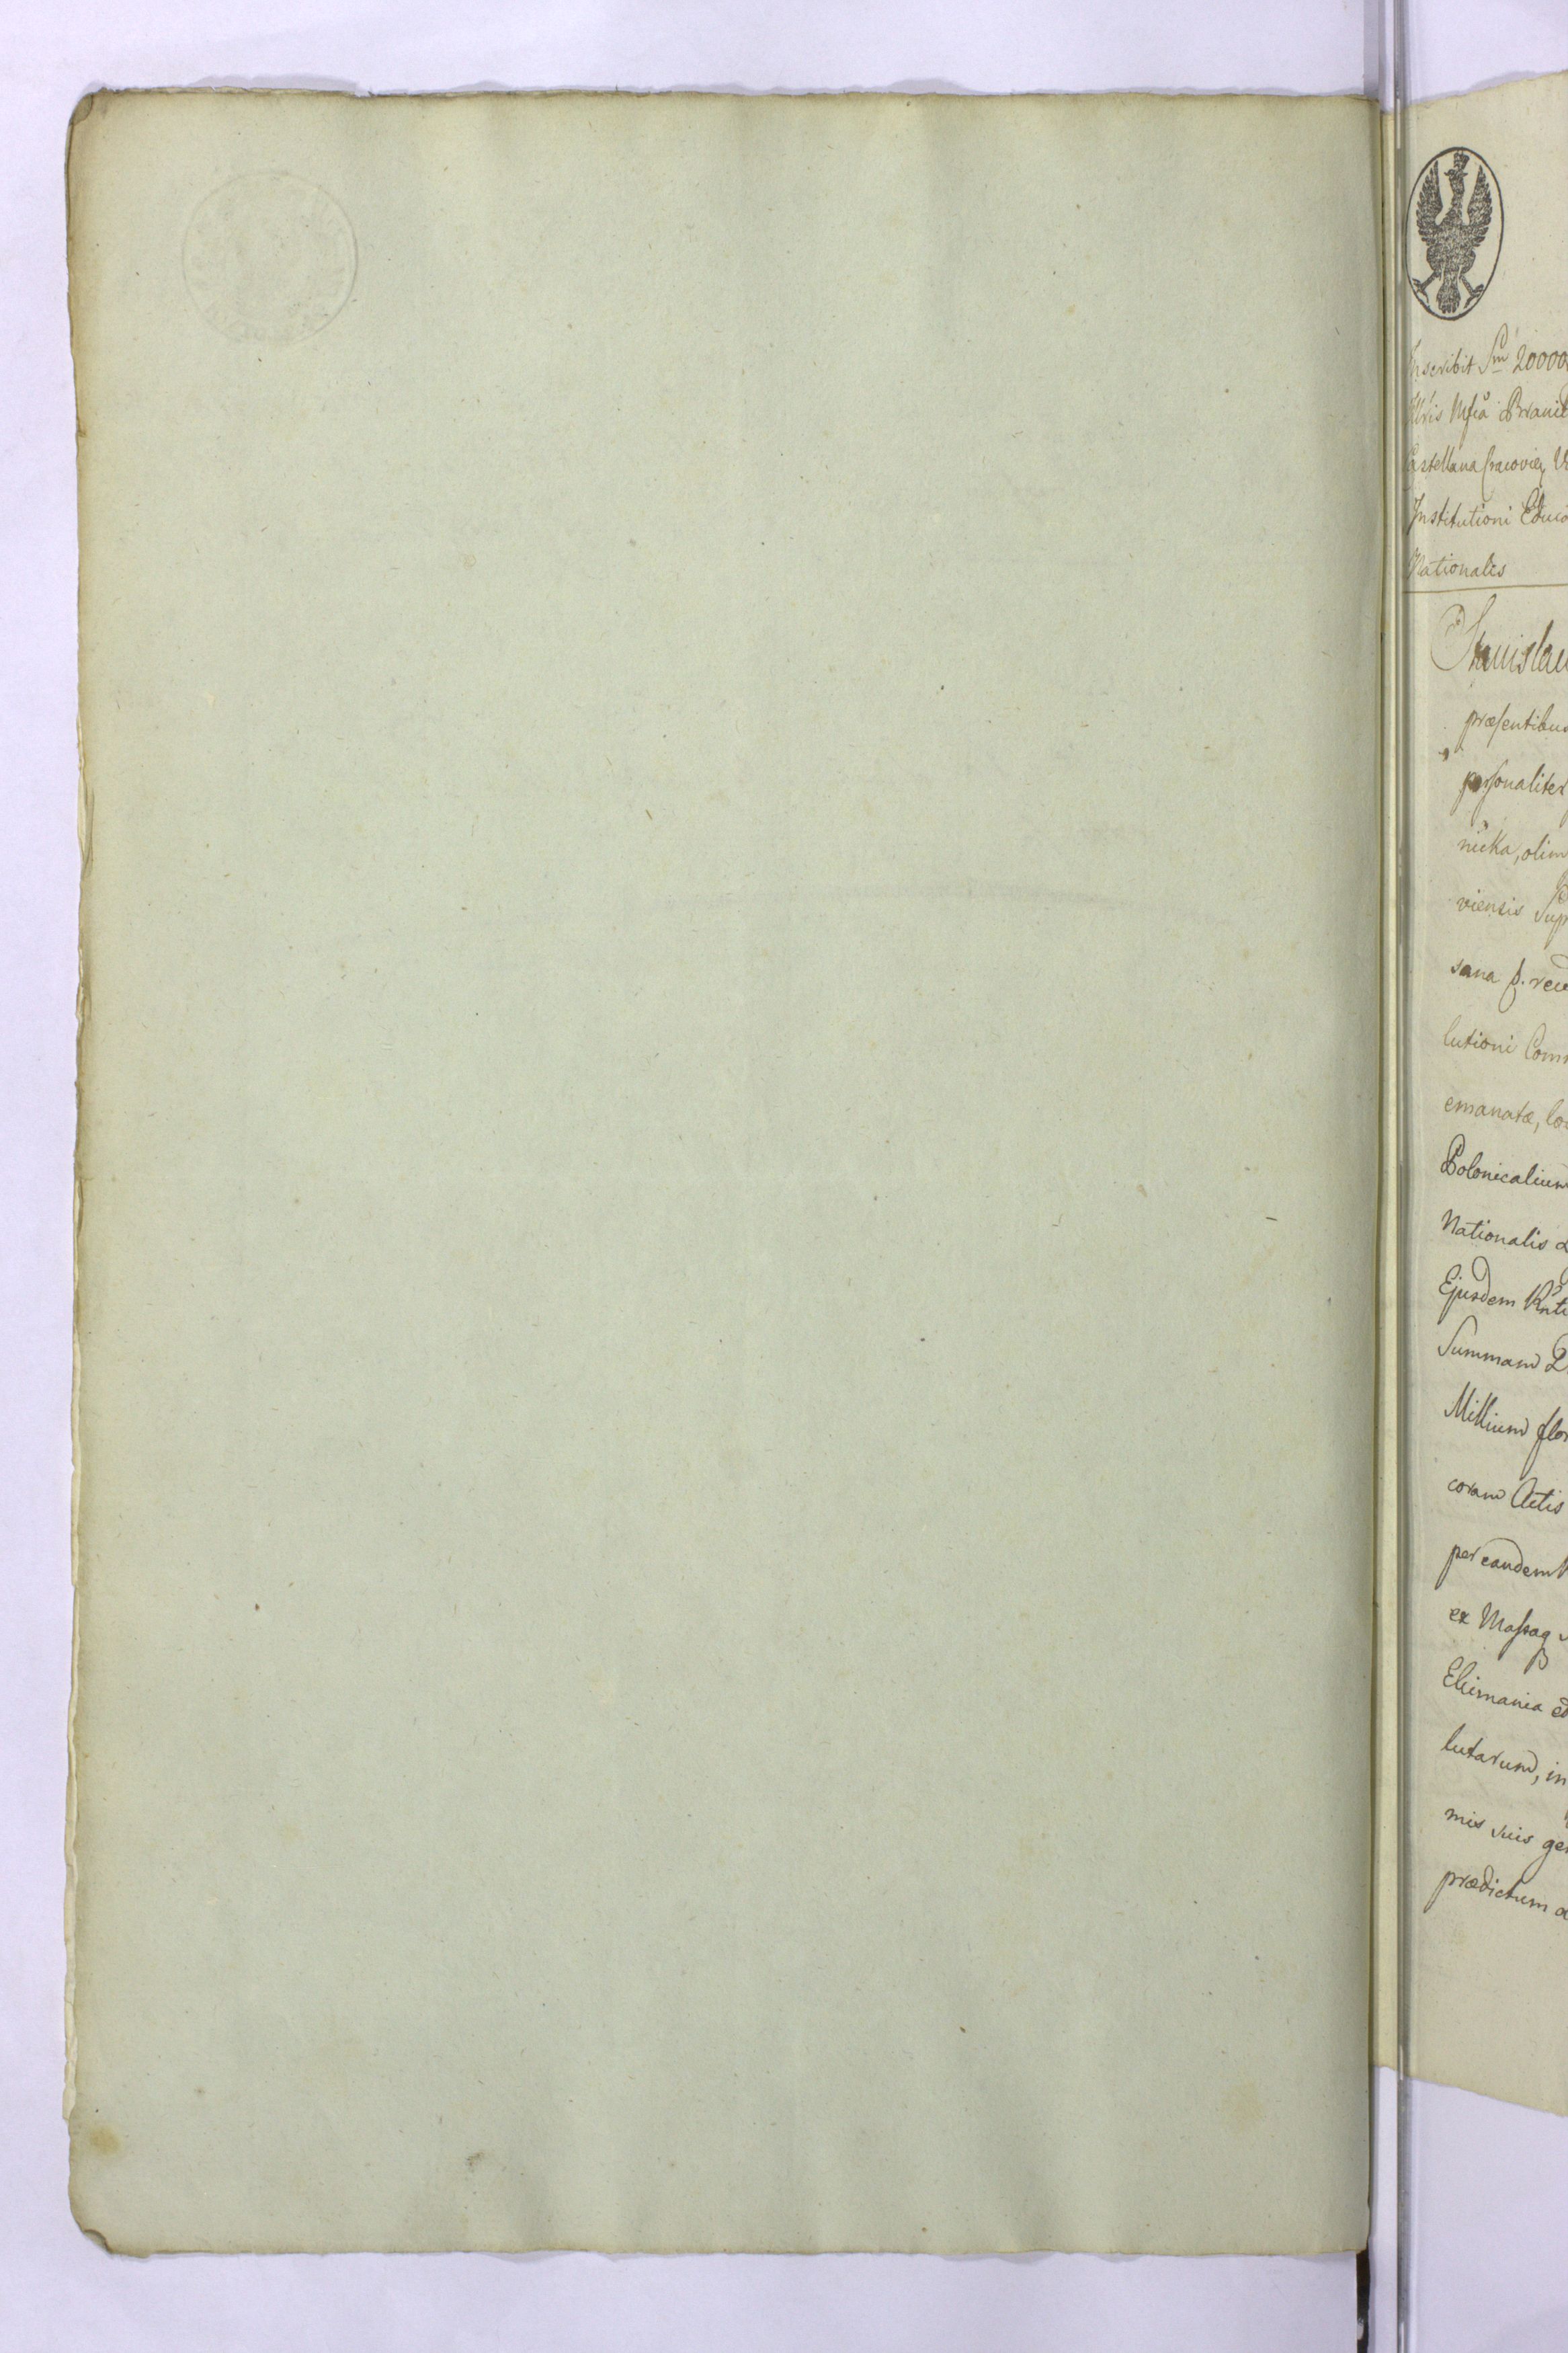 Inscribit Sm 20000
Castellana Cracovien
Institutioni Educa
Nationalis
Stanislau
præsentibus
personaliter
nicka, olim
viensis Sup
sana p. rec
lutioni Com
emanatæ, loc
Polonicalium
Nationalis
Ejusdem
Summam
Millium flor
coram Actis
per eandem
ex Massa
Eleimania
lutarum, in
mis suis gen
prædictum a